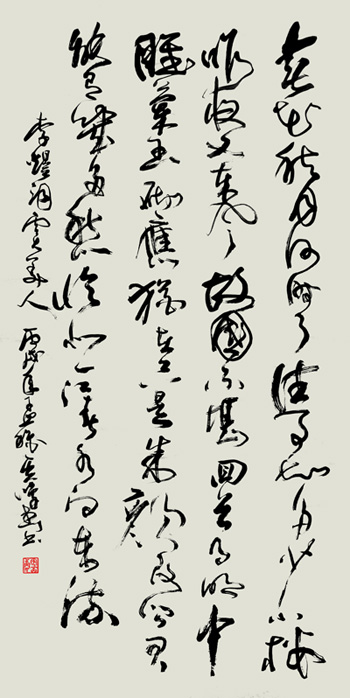 春花秋月何時了往事知多少小楼
昨夜又東風故國不堪回首月明中
雕阑玉砌應猶在只是朱顏改問君
能有幾多愁恰似一江春水向東流
李煜詞虞美人 丙戌年孟秋書